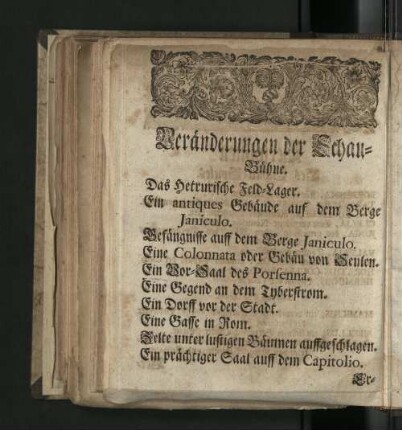 Veränderungen der Schau-
Bühne.
Das Hetrurische Feld-Lager.
Ein antiques Gebäude auf dem Berge
Janiculo.
Gefängnisse auff dem Berge Janiculo.
Eine Colonnata oder Gebäu von Seulen.
Ein Vor-Saal des Porsenna.
Eine Gegend an dem Tyberstrom.
Ein Dorff vor der Stadt.
Eine Gasse in Rom.
Zelte unter lustigen Bäumen auffgeschlagen.
Ein prächtiger Saal auff dem Capitolio.
Er-